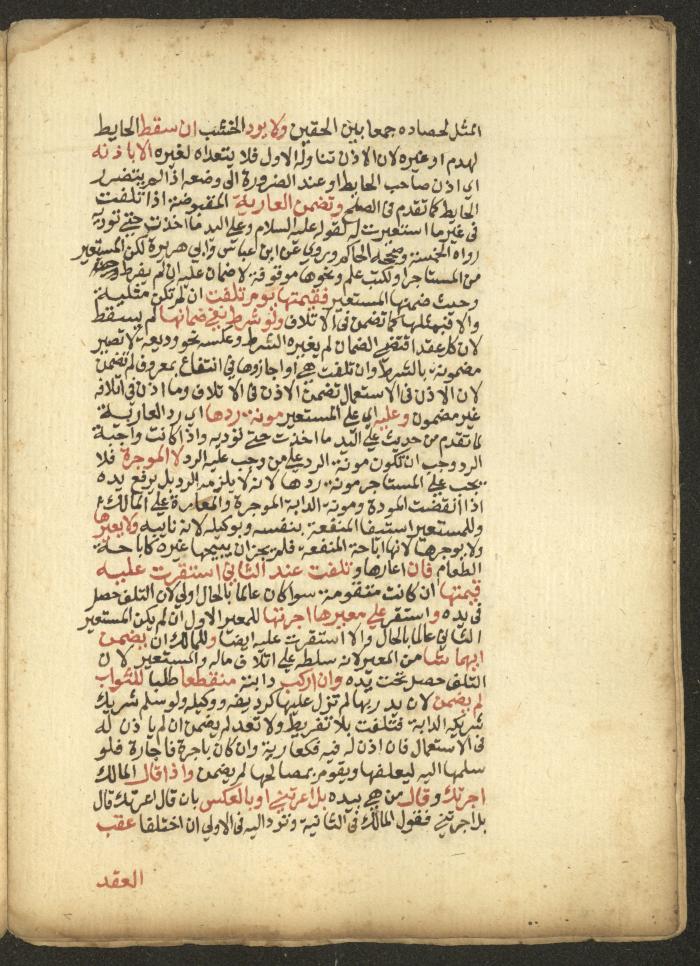 المثل لحصاده جمعا بين الحقين ولا يود الخشب ان سقط الحايط
لهدم او غيره لان الاذن تناوله الاول فلا يتعداه لغيره الا باذنه
اي اذن صاحب الحايط او عند الضرورة الى وضعه اذا لم يتضرر
الحايط كما تقدم في الصلح وتضمن العارية المقبوضة اذا تلفت
في غير ما استعيرت له لقوله عليه السلام وعلى اليد ما اخذت حتى توديه
رواه الخمسة وصححه الحاكم وروي عن ابن عباس وابي هريرة لكن المستعير
من المستاجر او لكتب علم ونحوها موقوفة لا ضمان عليه ان لم يفرط
وحيث ضمنها المستعير فقيمتها يوم تلفت ان لم تكن مثلية
والا فبمثلها كما تضمن في الاتلاف ولو شرط نفي ضمانها لم يسقط
لان كل عقد اقتضى الضمان لم يغيره الشرط وعكسه نحو وديعة لا تصير
مضمونة بالشرط وان تلفت هي او اجزاوها في انتفاع بمعروف لم تضمن
لان الاذن في الاستعمال تضمن الاذن في الاتلاف وما اذن في اتلافه
غير مضمون وعليه اي على المستعير مونة ردها اي رد العارية
لما تقدم من حديث على اليد ما اخذت حتى توديه واذا كانت واجبة
الرد وجب ان تكون مونة الرد على من وجب عليه الرد لا الموجرة فلا
يجب على المستاجر مونة ردها لانه لا يلزمه الرد بل يرفع يده
اذا انقضت المودة ومونة الدابة الموجرة والمعارة على المالك
وللمستعير استيفا المنفعة بنفسه وبوكيله لانه نايبه ولا يعيرها
ولا يوجرها لانها اباحة المنفعة فلم يجز ان يبيحها غيره كاباحة
الطعام فان اعارها وتلفت عند الثاني استقرت عليه
قيمتها ان كانت متقومة سوا كان عالما بالحال اولى لان التلف حصل
في يده واستقر على معيرها اجرتها للمعير الاول ان لم يكن المستعير
الثاني عالما بالحال والا استقرت عليه ايضا وللمالك ان يضمن
ايهما شا من المعير لانه سلطه على اتلاف ماله والمستعير لان
التلف حصل تحت يده وان اركب دابته منقطعا طلبا للثواب
لم يضمن لان يد ربها لم تزل عليها كرديفه ووكيله ولو سلم شريك
شريكه الدابة فتلفت بلا تفريط ولا تعد لم يضمن ان لم ياذن له
في الاستعمال فان اذن له فيه فكعارية وان كان باجرة فاجارة فلو
سلمها اليه ليعلفها ويقوم بمصالحها لم يضمن واذا قال المالك
اجرتك وقال من هي بيده بل اعرتني او بالعكس بان قال اعرتك قال
بل اجرتني فقول المالك في الثانية وترد اليه في الاولى ان اختلفا عقب
العقد